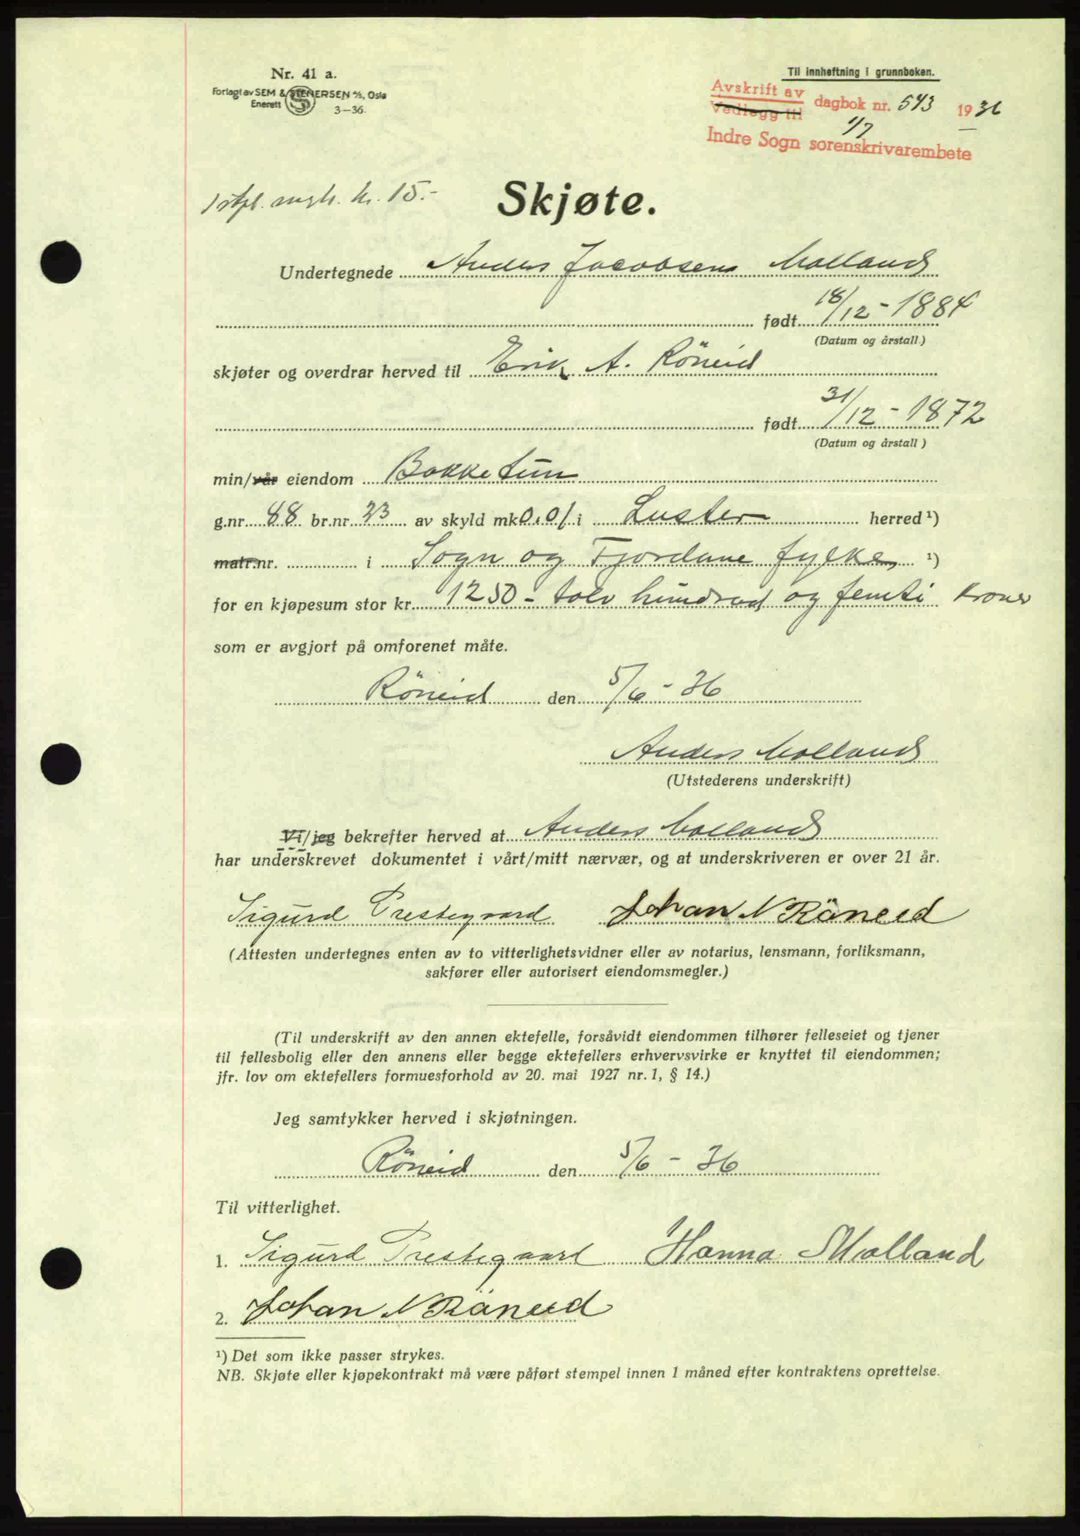 Nr. 41 a.
Forlagt av SEM & STENERSEN A/S, Oslo
Enerett 3–36.
Til innheftning i grunnboken.
Avskrift av
Vedlegg til dagbok nr. 543 1936
1/7
Indre Sogn sorenskrivarembete
1 stpl. mrk. kr. 15.-
Skjøte.
Undertegnede Anders Jacobsen Molland
født 18/12 - 1884
(Datum og årstall.)
skjøter og overdrar herved til Erik A. Röneid
født 31/12 - 1872
(Datum og årstall)
min/vår eiendom Bakketun
g.nr 88 br.nr 23 av skyld mk 0,01 i Luster herred ¹)
matr.nr. i Sogn og Fjordane fylke, ¹)
for en kjøpesum stor kr 1250 - tolv hundrad og femti Kroner
som er avgjort på omforenet måte.
Röneid den 5/6 - 36
Anders Molland
(Utstederens underskrift)
Vi/jeg bekrefter herved at Anders Molland
har underskrevet dokumentet i vårt/mitt nærvær, og at underskriveren er over 21 år.
Sigurd Prestegaard Johan N Röneid
(Attesten undertegnes enten av to vitterlighetsvidner eller av notarius, lensmann, forliksmann,
sakfører eller autorisert eiendomsmegler.)
(Til underskrift av den annen ektefelle, forsåvidt eiendommen tilhører felleseiet og tjener
til fellesbolig eller den annens eller begge ektefellers erhvervsvirke er knyttet til eiendommen;
jfr. lov om ektefellers formuesforhold av 20. mai 1927 nr. 1, § 14.)
Jeg samtykker herved i skjøtningen.
Röneid den 5/6 - 36
Til vitterlighet.
1. Sigurd Prestegaard Hanna Molland
2. Johan N Röneid
¹) Det som ikke passer strykes.
NB. Skjøte eller kjøpekontrakt må være påført stempel innen 1 måned efter kontraktens oprettelse.